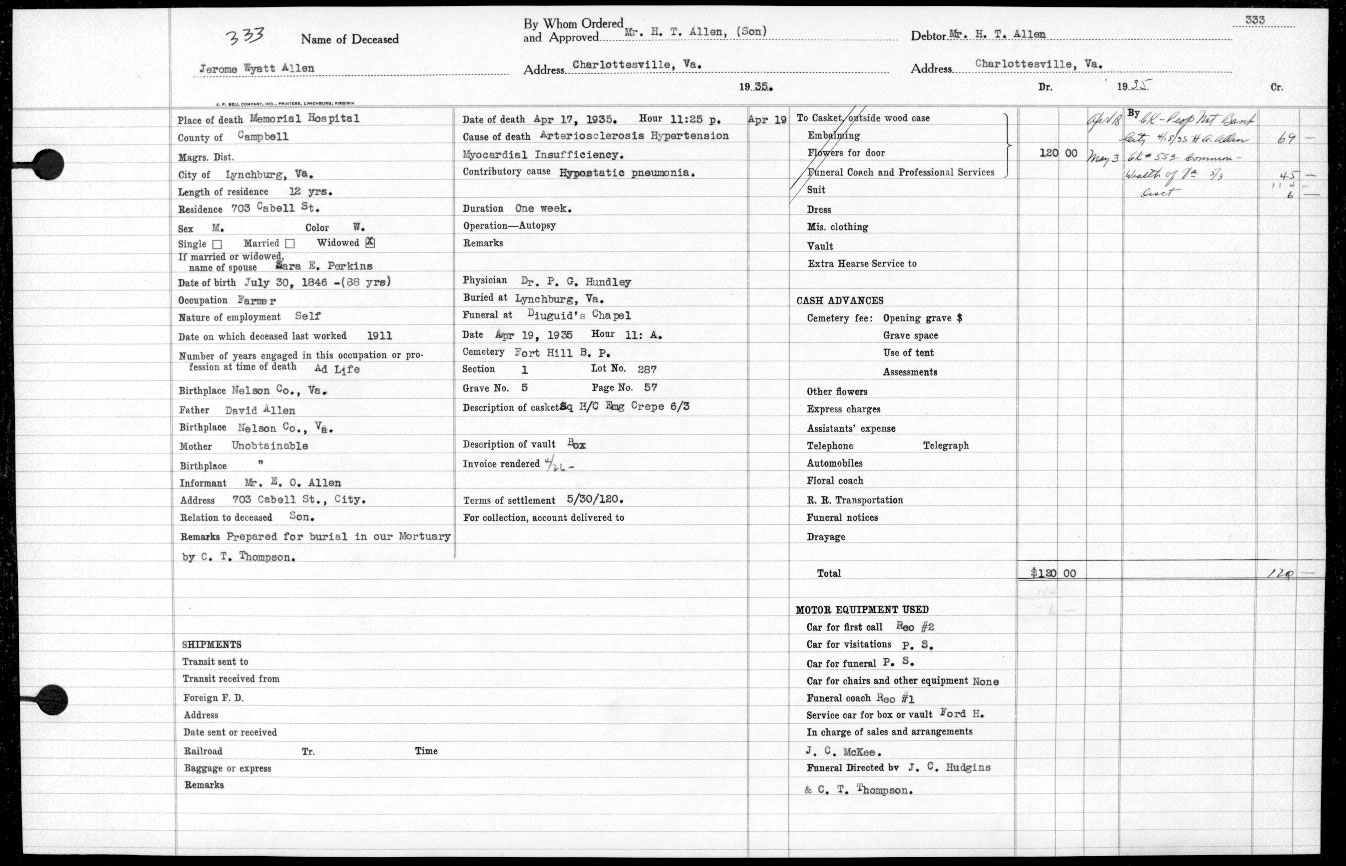 333
Name of Deceased
By Whom Ordered and Approved Mr. H. T. Allen, (Son)
333
Debtor Mr. H. T. Allen
Jerome Wyatt Allen
Address Charlottesville, Va.
Address Charlottesville, Va.
J. P. BELL COMPANY, INC., PRINTERS, LYNCHBURG, VIRGINIA
1935.
Dr.
1935
Cr.
Place of death Memorial Hospital
County of Campbell
Magrs. Dist.
City of Lynchburg, Va.
Length of residence 12 yrs.
Residence 703 Cabell St.
Sex M. Color W.
Single ☐ Married ☐ Widowed ☒
If married or widowed,
name of spouse Sara E. Perkins
Date of birth July 30, 1846 -(88 yrs)
Occupation Farmer
Nature of employment Self
Date on which deceased last worked 1911
Number of years engaged in this occupation or pro-
fession at time of death Ad Life
Birthplace Nelson Co., Va.
Father David Allen
Birthplace Nelson Co., Va.
Mother Unobtainable
Birthplace "
Informant Mr. E. O. Allen
Address 703 Cabell St., City.
Relation to deceased Son.
Remarks Prepared for burial in our Mortuary
by C. T. Thompson.
SHIPMENTS
Transit sent to
Transit received from
Foreign F. D.
Address
Date sent or received
Railroad Tr. Time
Baggage or express
Remarks
Date of death Apr 17, 1935. Hour 11:25 p.
Cause of death Arteriosclerosis Hypertension
Myocardial Insufficiency.
Contributory cause Hypostatic pneumonia.
Duration One week.
Operation—Autopsy
Remarks
Physician Dr. P. G. Hundley
Buried at Lynchburg, Va.
Funeral at Diuguid's Chapel
Date Apr 19, 1935 Hour 11: A.
Cemetery Fort Hill B. P.
Section 1 Lot No. 287
Grave No. 5 Page No. 57
Description of casket Sq H/C Emg Crepe 6/3
Description of vault Box
Invoice rendered 4/26 -
Terms of settlement 5/30/120.
For collection, account delivered to
Apr 19
To Casket, outside wood case
Embalming
Flowers for door 120 00
Funeral Coach and Professional Services
Suit
Dress
Mis. clothing
Vault
Extra Hearse Service to
CASH ADVANCES
Cemetery fee: Opening grave $
Grave space
Use of tent
Assessments
Other flowers
Express charges
Assistants' expense
Telephone Telegraph
Automobiles
Floral coach
R. R. Transportation
Funeral notices
Drayage
Total $120 00 120 —
MOTOR EQUIPMENT USED
Car for first call Reo #2
Car for visitations P. S.
Car for funeral P. S.
Car for chairs and other equipment None
Funeral coach Reo #1
Service car for box or vault Ford H.
In charge of sales and arrangements
J. C. McKee.
Funeral Directed by J. C. Hudgins
& C. T. Thompson.
Apr 18 By Ck - Peop Nat Bank
City 4/18/35 H A. Allen 69 —
May 3 Ck # 553 - Common-
wealth of Va 5/3 45 —
114 -
Disct 6 —